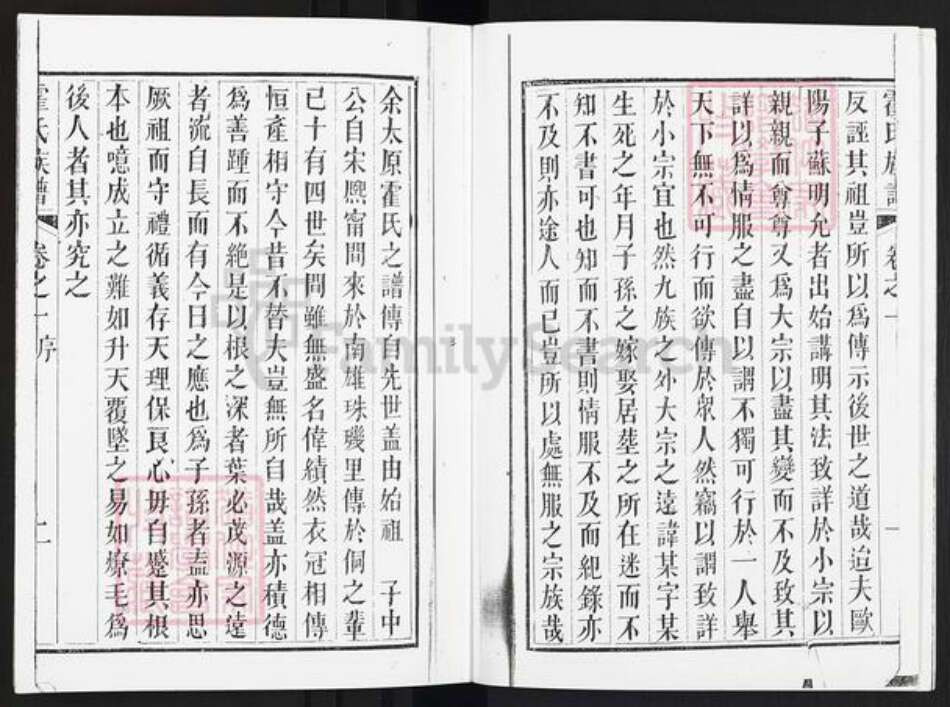 霍氏族譜 卷之一 一
反誣其祖豈所以為傳示後世之道哉迨夫歐
陽子蘇明允者出始講明其法致詳於小宗以
親親而尊尊又為大宗以盡其變而不及致其
詳以為情服之盡自以謂不獨可行於一人舉
天下無不可行而欲傳於眾人然竊以謂致詳
於小宗宜也然九族之外大宗之遠諱某字某
生死之年月子孫之嫁娶居塟之所在迷而不
知不書可也知而不書則情服不及而紀錄亦
不及則亦途人而已豈所以處無服之宗族哉
余太原霍氏之譜傳自先世盖由始祖 子中
公自宋熈甯間來於南雄珠磯里傳於侗之輩
已十有四世矣間雖無盛名偉績然衣冠相傳
恒產相守今昔不替夫豈無所自哉盖亦積德
為善踵而不絶是以根之深者葉必茂源之遠
者流自長而有今日之應也為子孫者盍亦思
厥祖而守禮循義存天理保良心毋自蹙其根
本也噫成立之難如升天覆墜之易如燎毛為
後人者其亦究之
霍氏族譜 卷之一 序 二
FamilySearch